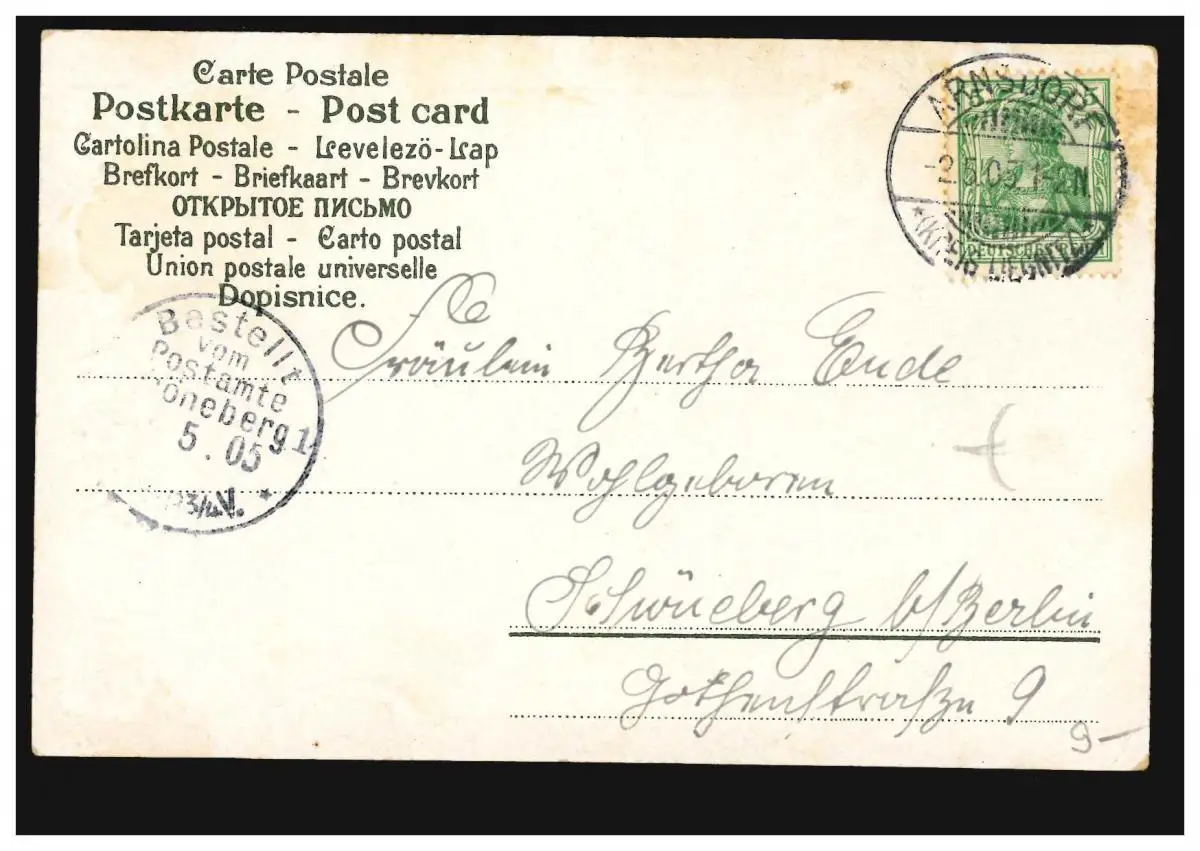 Carte Postale
Postkarte - Post card
Cartolina Postale - Levelezö-Lap
Brefkort - Briefkaart - Brevkort
ОТКРЫТОЕ ПИСЬМО
Tarjeta postal - Carto postal
Union postale universelle
Dopisnice.
ARNSDORF
2.5.05 1-2N
* (KREIS LIEGNITZ)
DEUTSCHES
Bestellt
vom
Postamte
öneberg 1
5. 05
3/4V. *
Fräulein Bertha Ende
Wohlgeboren
Schöneberg b/Berlin
Gothenstraße 9
9-